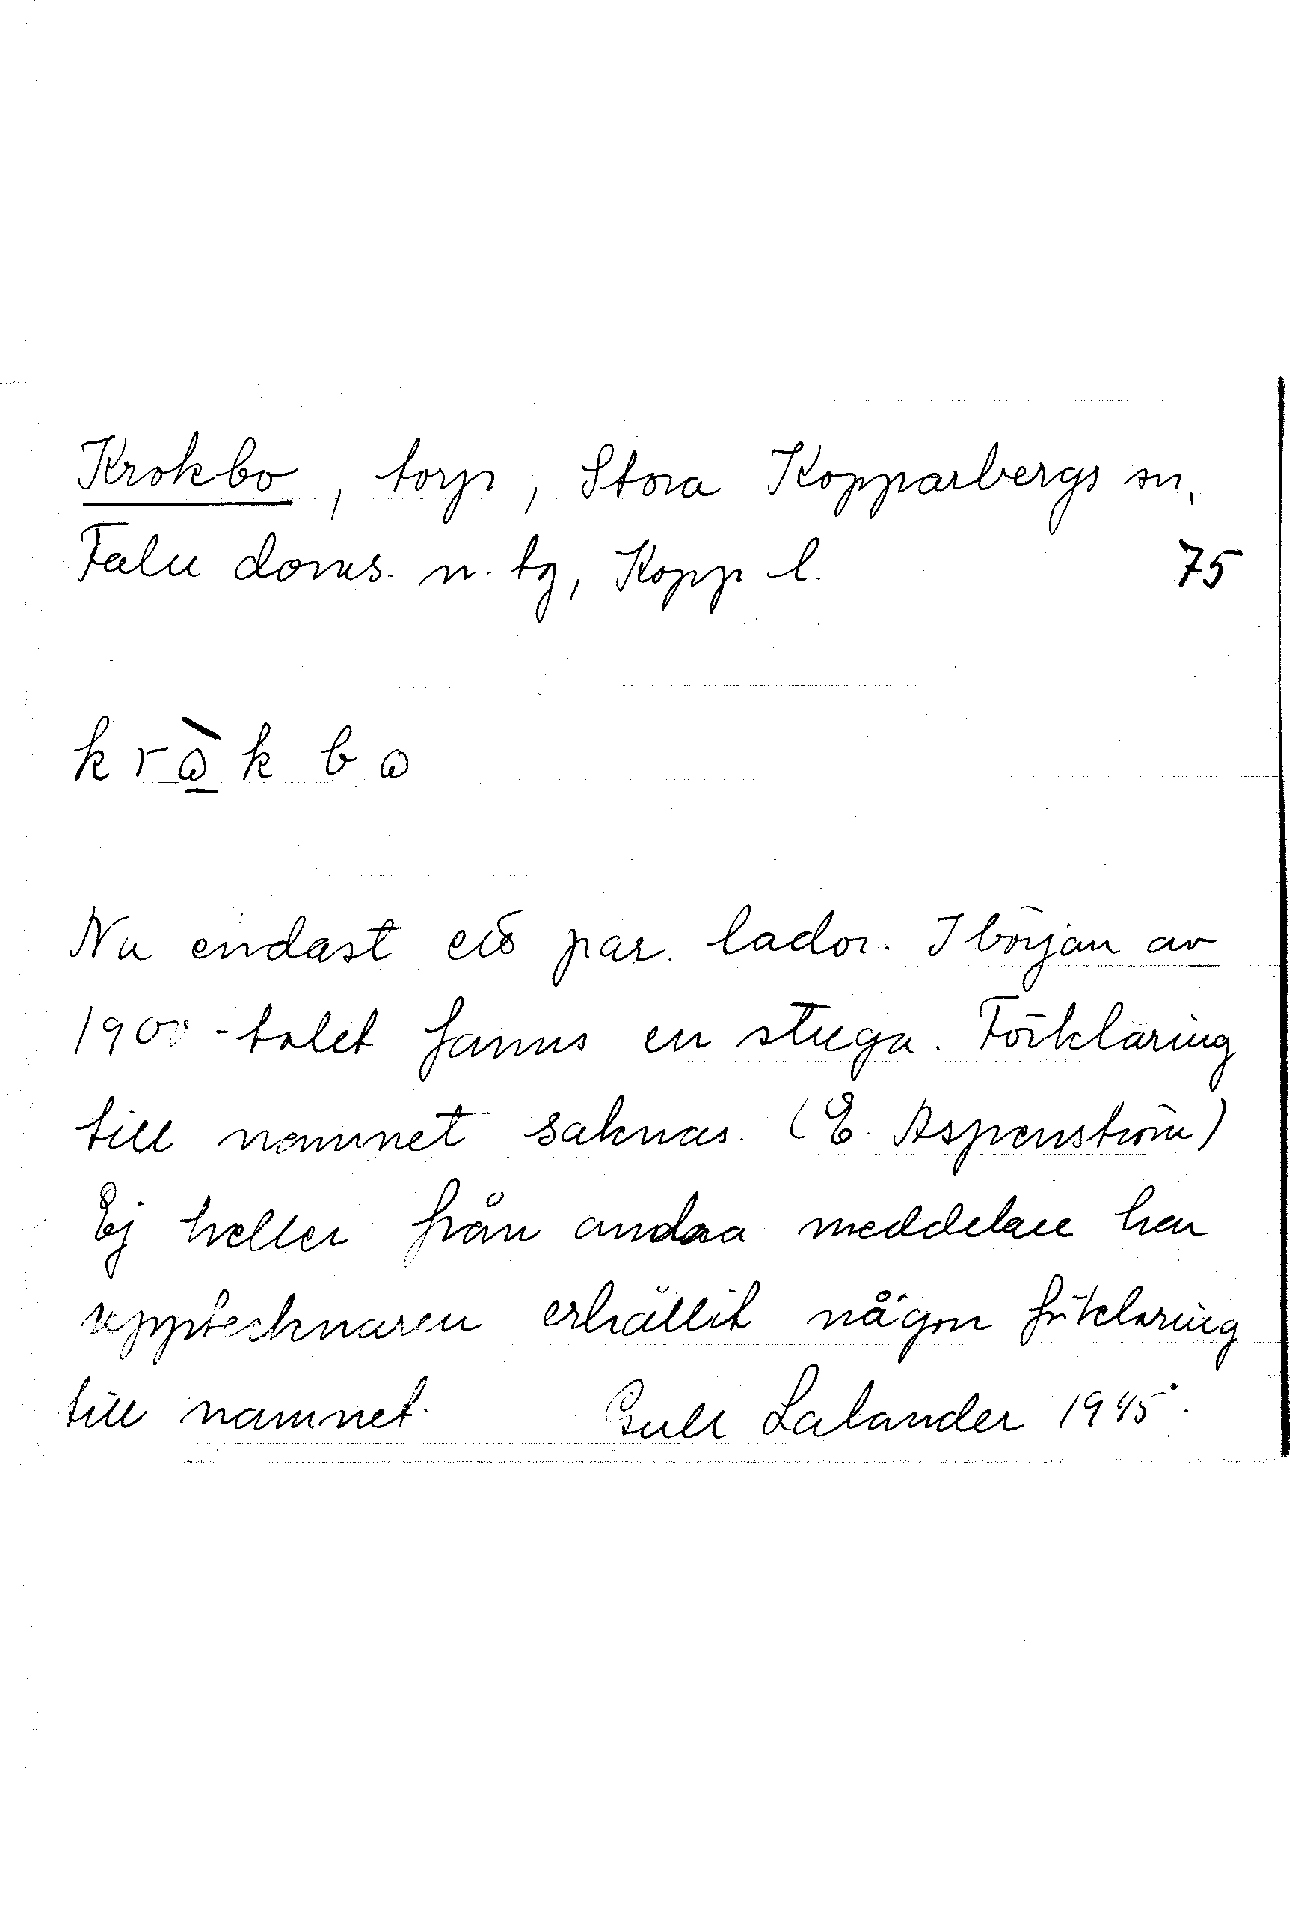 Krokbo, torp, Stora Kopparbergs sn,
Falu doms. n. tg, Kopp l. 75
kròkbo
Nu endast ett par lador. I början av
1900-talet fanns en stuga. Förklaring
till namnet saknas. (E. Aspenström)
Ej heller från andra meddelare har
upptecknaren erhållit någon förklaring
till namnet. Gull Lalander 1945.